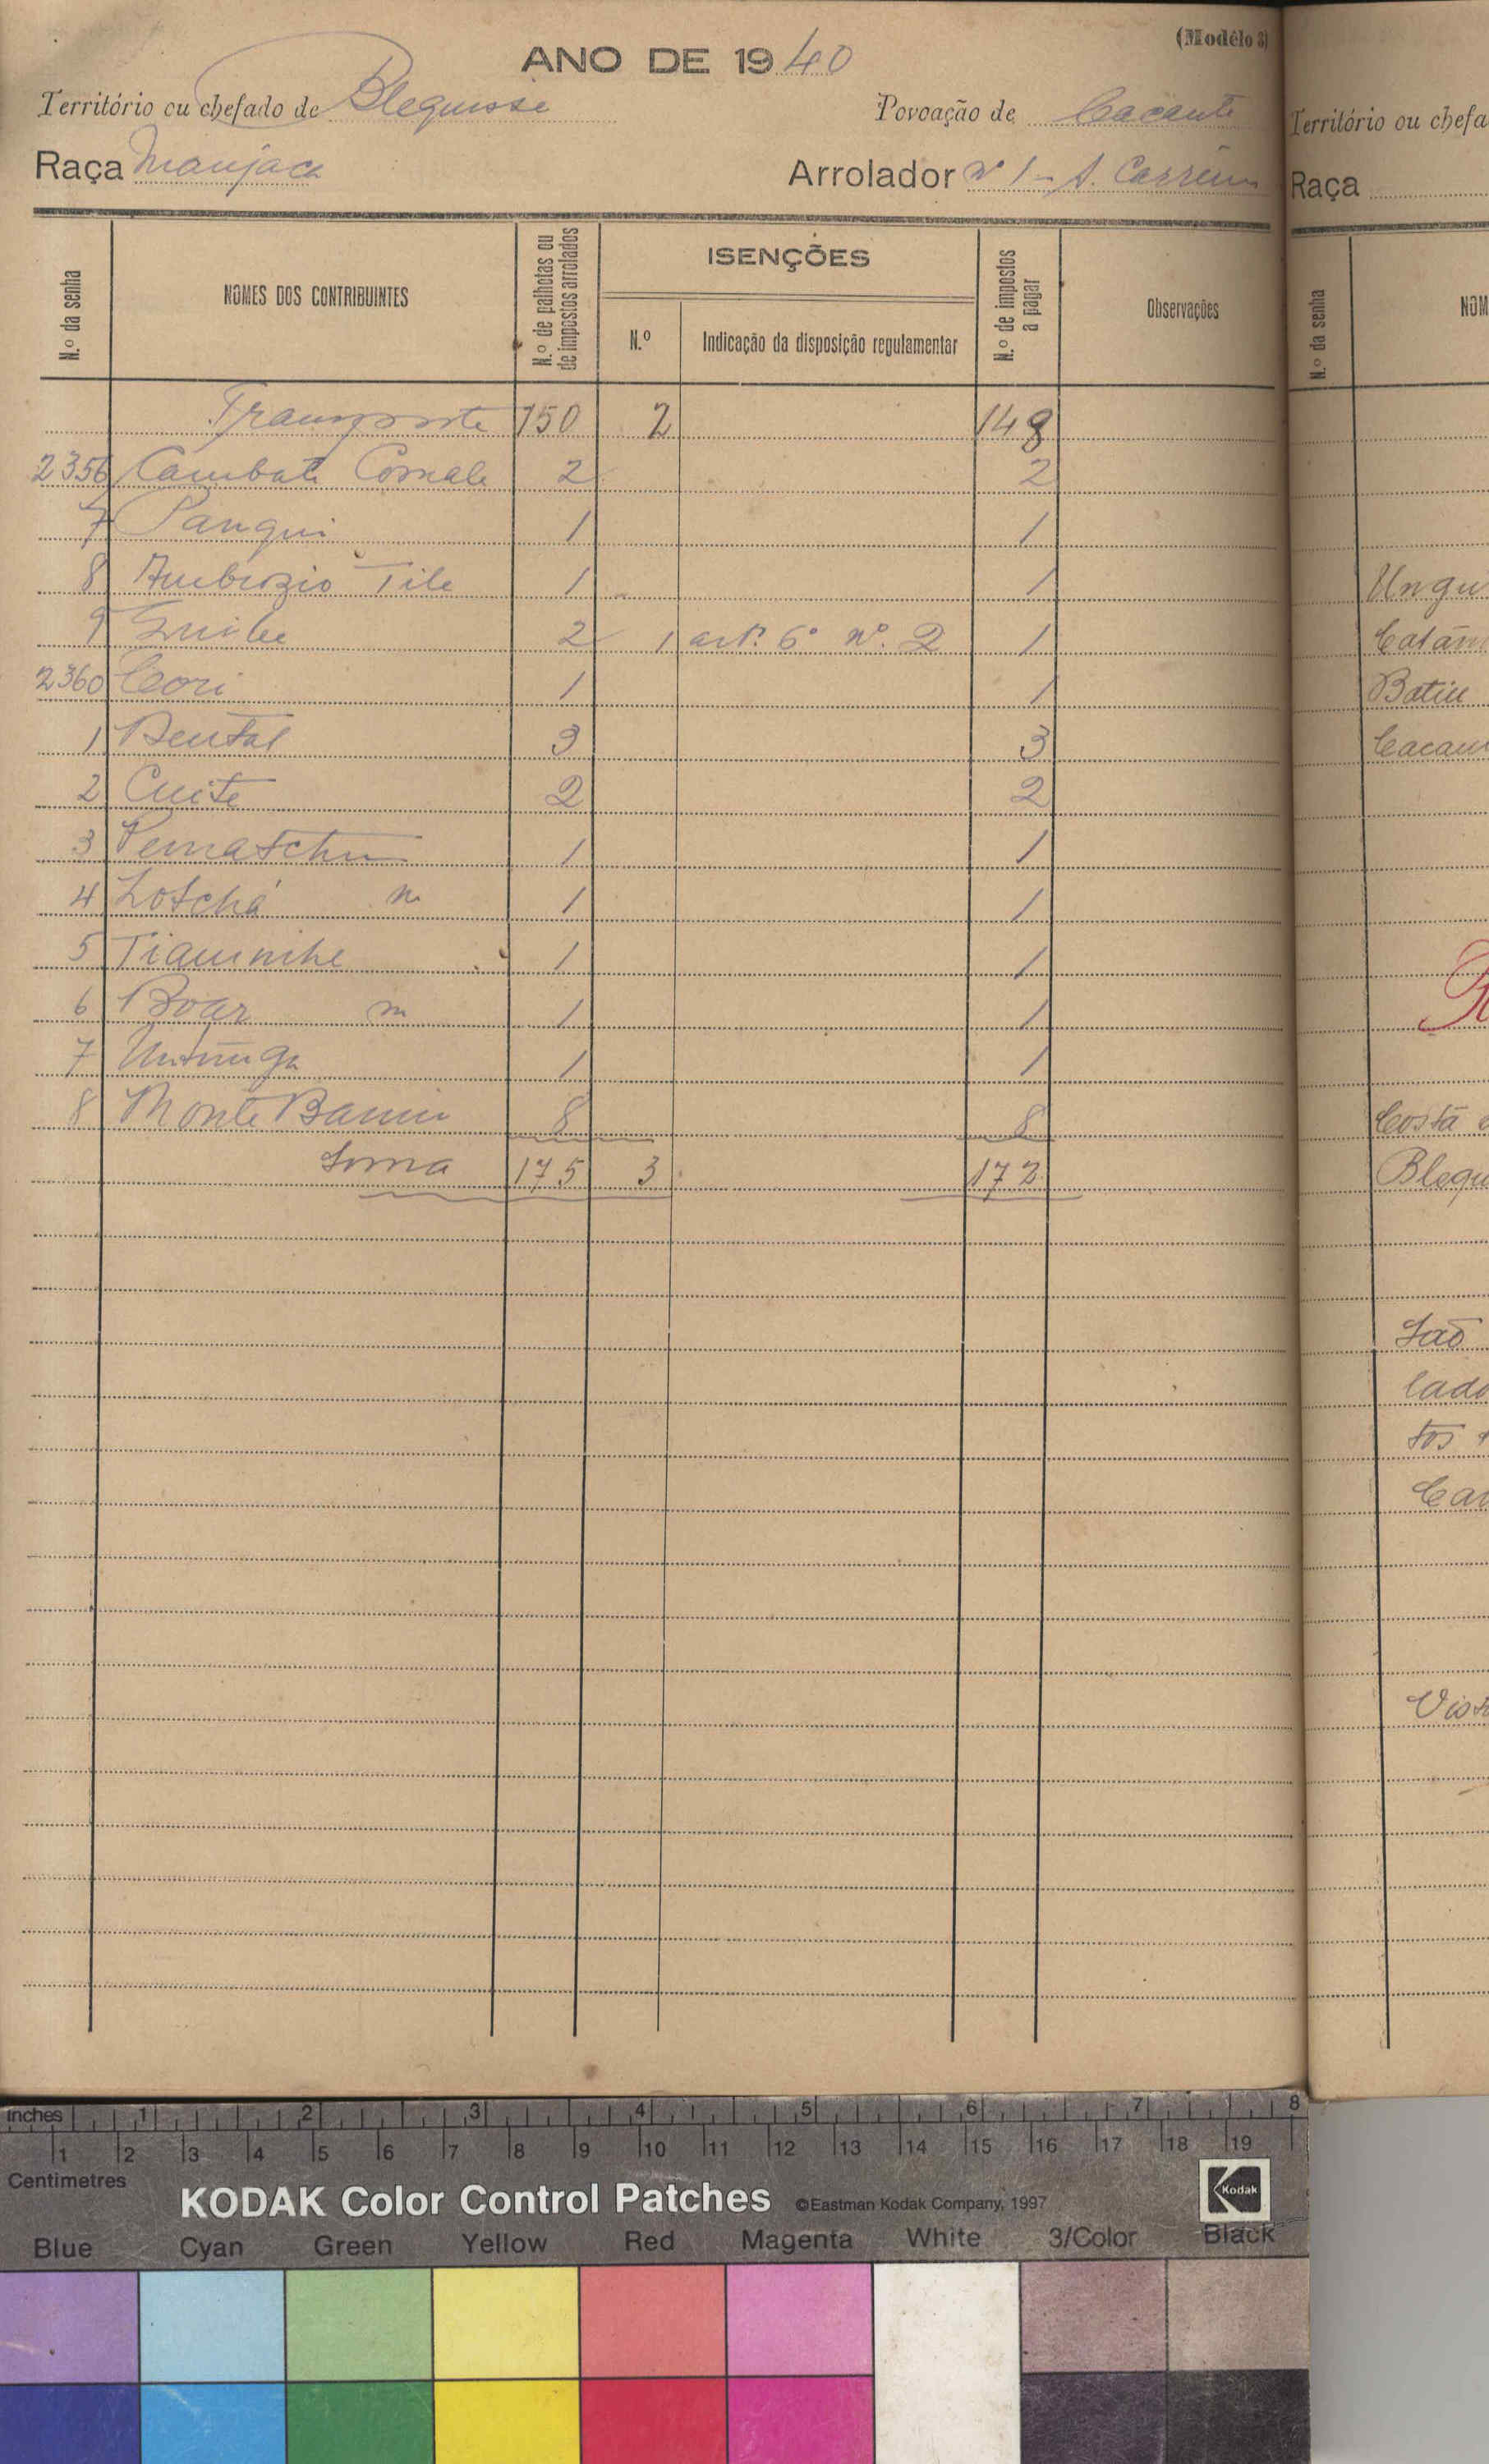 (Modélo 3)
ANO DE 1940
Território ou chefado de Blequisse
Povoação de Cacante
Raça Manjaca
Arrolador nº 1 - A. Carreira
N.º da senha
NOMES DOS CONTRIBUINTES
N.º de palhotas ou de impostos arrolados
ISENÇÕES
N.º
Indicação da disposição regulamentar
N.º de impostos a pagar
Observações
Transporte 150 2 148
2356 Cambate Comale 2 2
7 Panqui 1 1
8 Ambrozio Tile 1 1
9 2 1 artº. 6º nº. 2 1
2360 Cori 1 1
1 Bental 3 3
2 Cuite 2 2
3 1 1
4 Lotchá m 1 1
5 1 1
6 Boar m 1 1
7 1 1
8 Monte 8 8
Soma 175 3 172
Território ou chefa
Raça
N.º da senha
NOM
Ungu
Catam
Batiu
Cacan
Costa
Blequ
São
lado
tos
Car
Vist
inches 1 2 3 4 5 6 7 8
1 2 3 4 5 6 7 8 9 10 11 12 13 14 15 16 17 18 19
Centimetres
KODAK Color Control Patches ©Eastman Kodak Company, 1997
Kodak
Blue Cyan Green Yellow Red Magenta White 3/Color Black